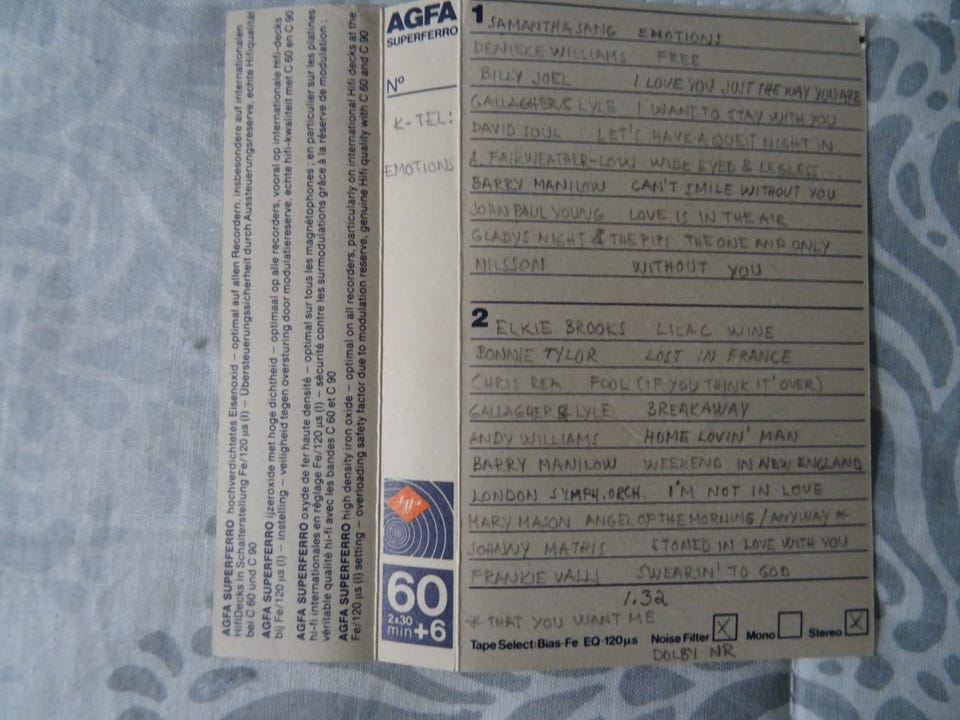 AGFA SUPERFERRO hochverdichtetes Eisenoxid – optimal auf allen Recordern, insbesondere auf internationalen
HifiDecks in Schalterstellung Fe/120 µs (I) – Übersteuerungssicherheit durch Aussteuerungsreserve, echte Hifiqualität
bei C 60 und C 90
AGFA SUPERFERRO ijzeroxide met hoge dichtheid – optimaal op alle recorders, vooral op internationale hifi-decks
bij Fe/120 µs (I) – instelling – veiligheid tegen oversturing door modulatiereserve, echte hifi-kwaliteit met C 60 en C 90
AGFA SUPERFERRO oxyde de fer haute densité – optimal sur tous les magnétophones; en particulier sur les platines
hi-fi internationales en réglage Fe/120 µs (I) – sécurité contre les surmodulations grâce à la réserve de modulation;
véritable qualité hi-fi avec les bandes C 60 et C 90
AGFA SUPERFERRO high density iron oxide – optimal on all recorders, particularly on international Hifi decks at the
Fe/120 µs (I) setting – overloading safety factor due to modulation reserve, genuine Hifi quality with C 60 and C 90
AGFA
SUPERFERRO
Nº
K-TEL:
EMOTIONS
Agfa
60
2x30
min+6
1
SAMANTHA SANG EMOTIONS
DENIECE WILLIAMS FREE
BILLY JOEL I LOVE YOU JUST THE WAY YOU ARE
GALLAGHER & LYLE I WANT TO STAY WITH YOU
DAVID SOUL LET'S HAVE A QUIET NIGHT IN
A. FAIRWEATHER-LOW WIDE EYED & LEGLESS
BARRY MANILOW CAN'T SMILE WITHOUT YOU
JOHN PAUL YOUNG LOVE IS IN THE AIR
GLADYS NIGHT & THE PIPS THE ONE AND ONLY
NILSSON WITHOUT YOU
2 ELKIE BROOKS LILAC WINE
BONNIE TYLOR LOST IN FRANCE
CHRIS REA FOOL (IF YOU THINK IT'OVER)
GALLAGHER & LYLE BREAKAWAY
ANDY WILLIAMS HOME LOVIN' MAN
BARRY MANILOW WEEKEND IN NEW ENGLAND
LONDON SYMPH. ORCH. I'M NOT IN LOVE
MARY MASON ANGEL OF THE MORNING / ANYWAY *
JOHNNY MATHIS STONED IN LOVE WITH YOU
FRANKIE VALLI SWEARIN' TO GOD
1.32
* THAT YOU WANT ME
Tape Select: Bias-Fe EQ-120µs Noise Filter Mono Stereo
DOLBY NR